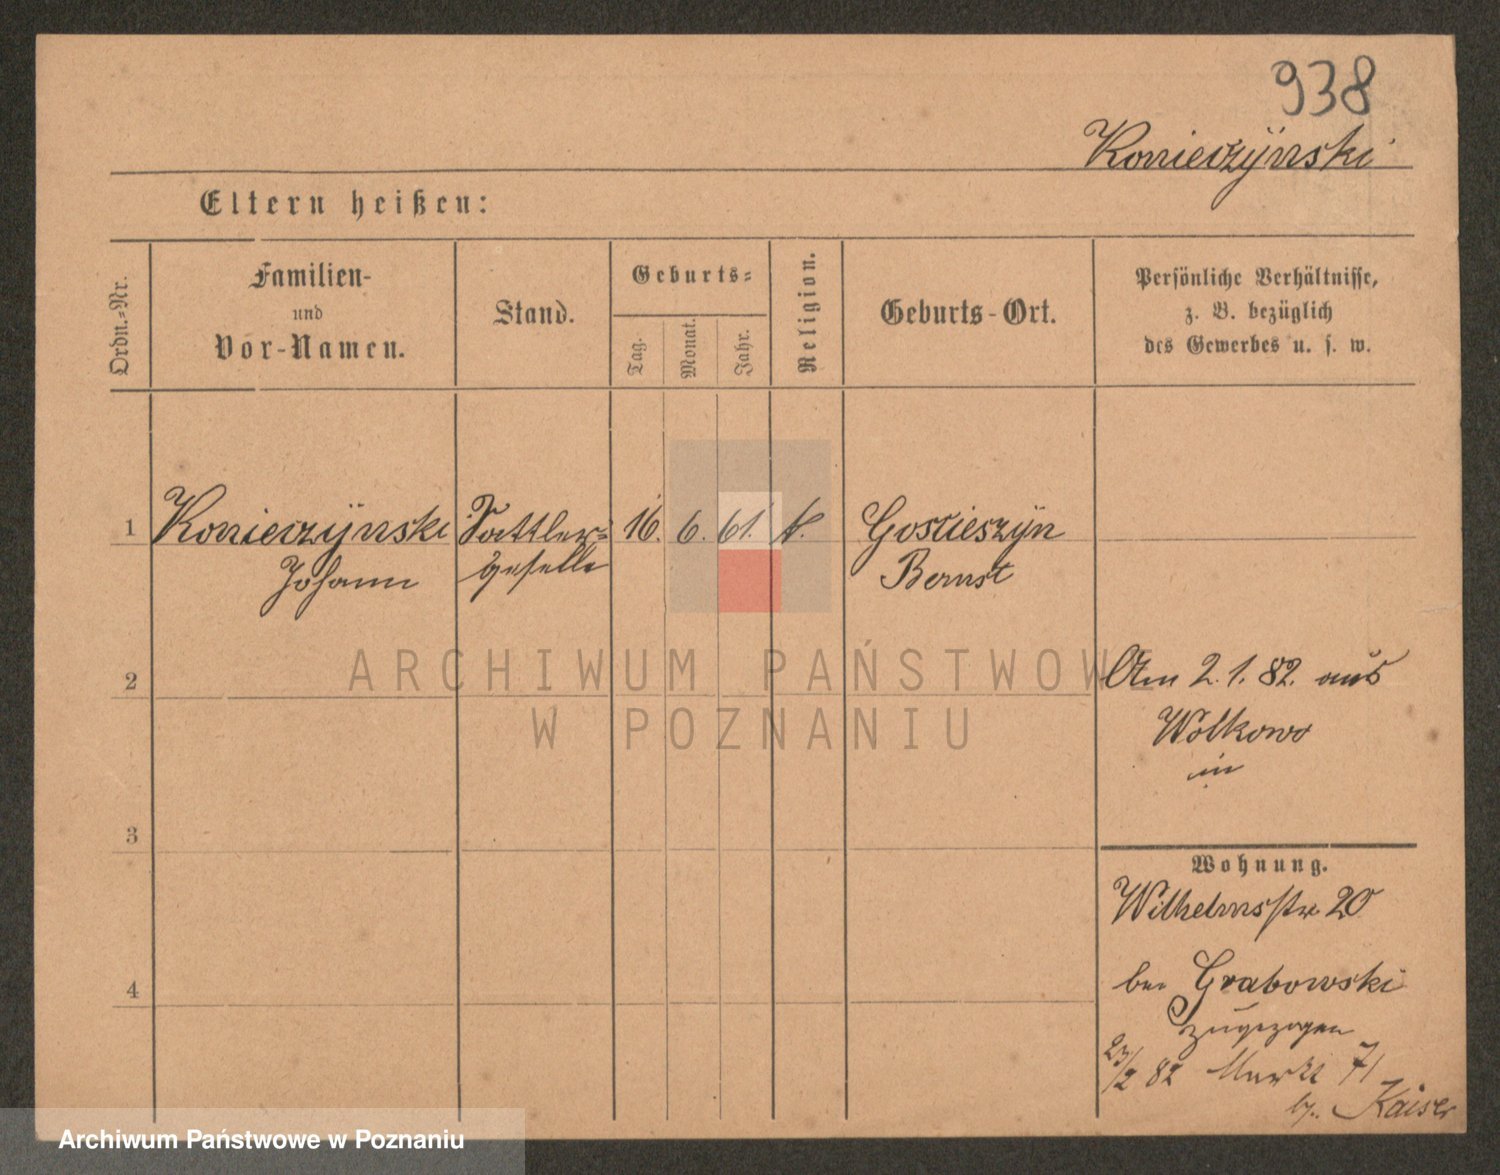 938
Konieczÿnski
Eltern heißen:
Ordn.=Nr.
Familien-
und
Vor-Namen.
Stand.
Geburts=
Tag.
Monat.
Jahr.
Religion.
Geburts-Ort.
Persönliche Verhältnisse,
z. B. bezüglich
des Gewerbes u. s. w.
1
Konieczÿnski
Johann
Sattler=
geselle
16.
6.
61.
k.
Goscieszÿn
Bomst
2
Am 2.1.82. aus
Wolkowo
in
3
Wohnung.
Wilhelmsstr 20
bei Grabowski
zugezogen
4
23/2 82 Markt 71
b. Kaiser
ARCHIWUM PAŃSTWOWE
W POZNANIU
Archiwum Państwowe w Poznaniu